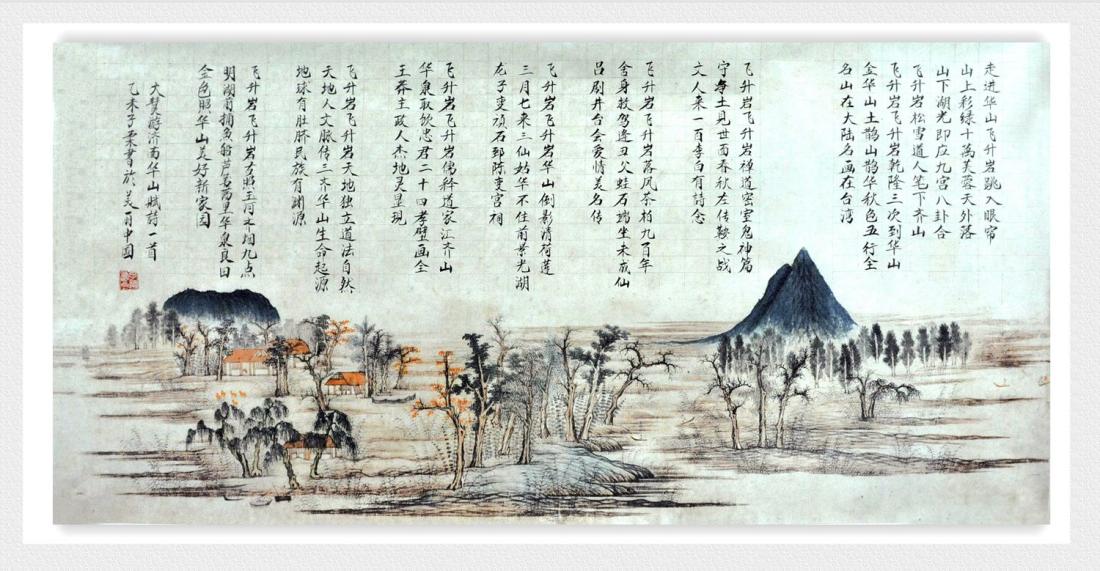 走进华山飞升岩跳入眼帘
山上彩绿十萬芙蓉天外落
山下湖光即庄九宫八卦合
飞升岩松雪道人笔下齐山
飞升岩飞升岩乾隆三次到华山
金华山土鹊山鹊华秋色五行全
名山在大陆名画在台湾
飞升岩飞升岩禅道密室鬼神篇
守土见世面春秋左传鞍之战
文人来一百李白有詩念
飞升岩飞升岩落风茶柏九百年
舍身救驾逢丑父蛙石端坐未成仙
吕剧井台会爱情美名传
飞升岩飞升岩华山倒影清荷莲
三月七来三仙姑华不住前景光湖
龙子变顽石郅陈变宫祠
飞升岩飞升岩儒释道家汇齐山
华泉取饮忠君二十四孝壁画全
王莽主政人杰地灵呈现
飞升岩飞升岩天地独立道法自然
天地人文脉传三齐华山生命起源
地球有肚脐民族有渊源
飞升岩飞升岩玉河齐烟九点
明湖南捕魚翁芦花两里华泉良田
金色照华山美好新家园
大賢游济南华山赋詩一首
乙未子栗書於美月中国